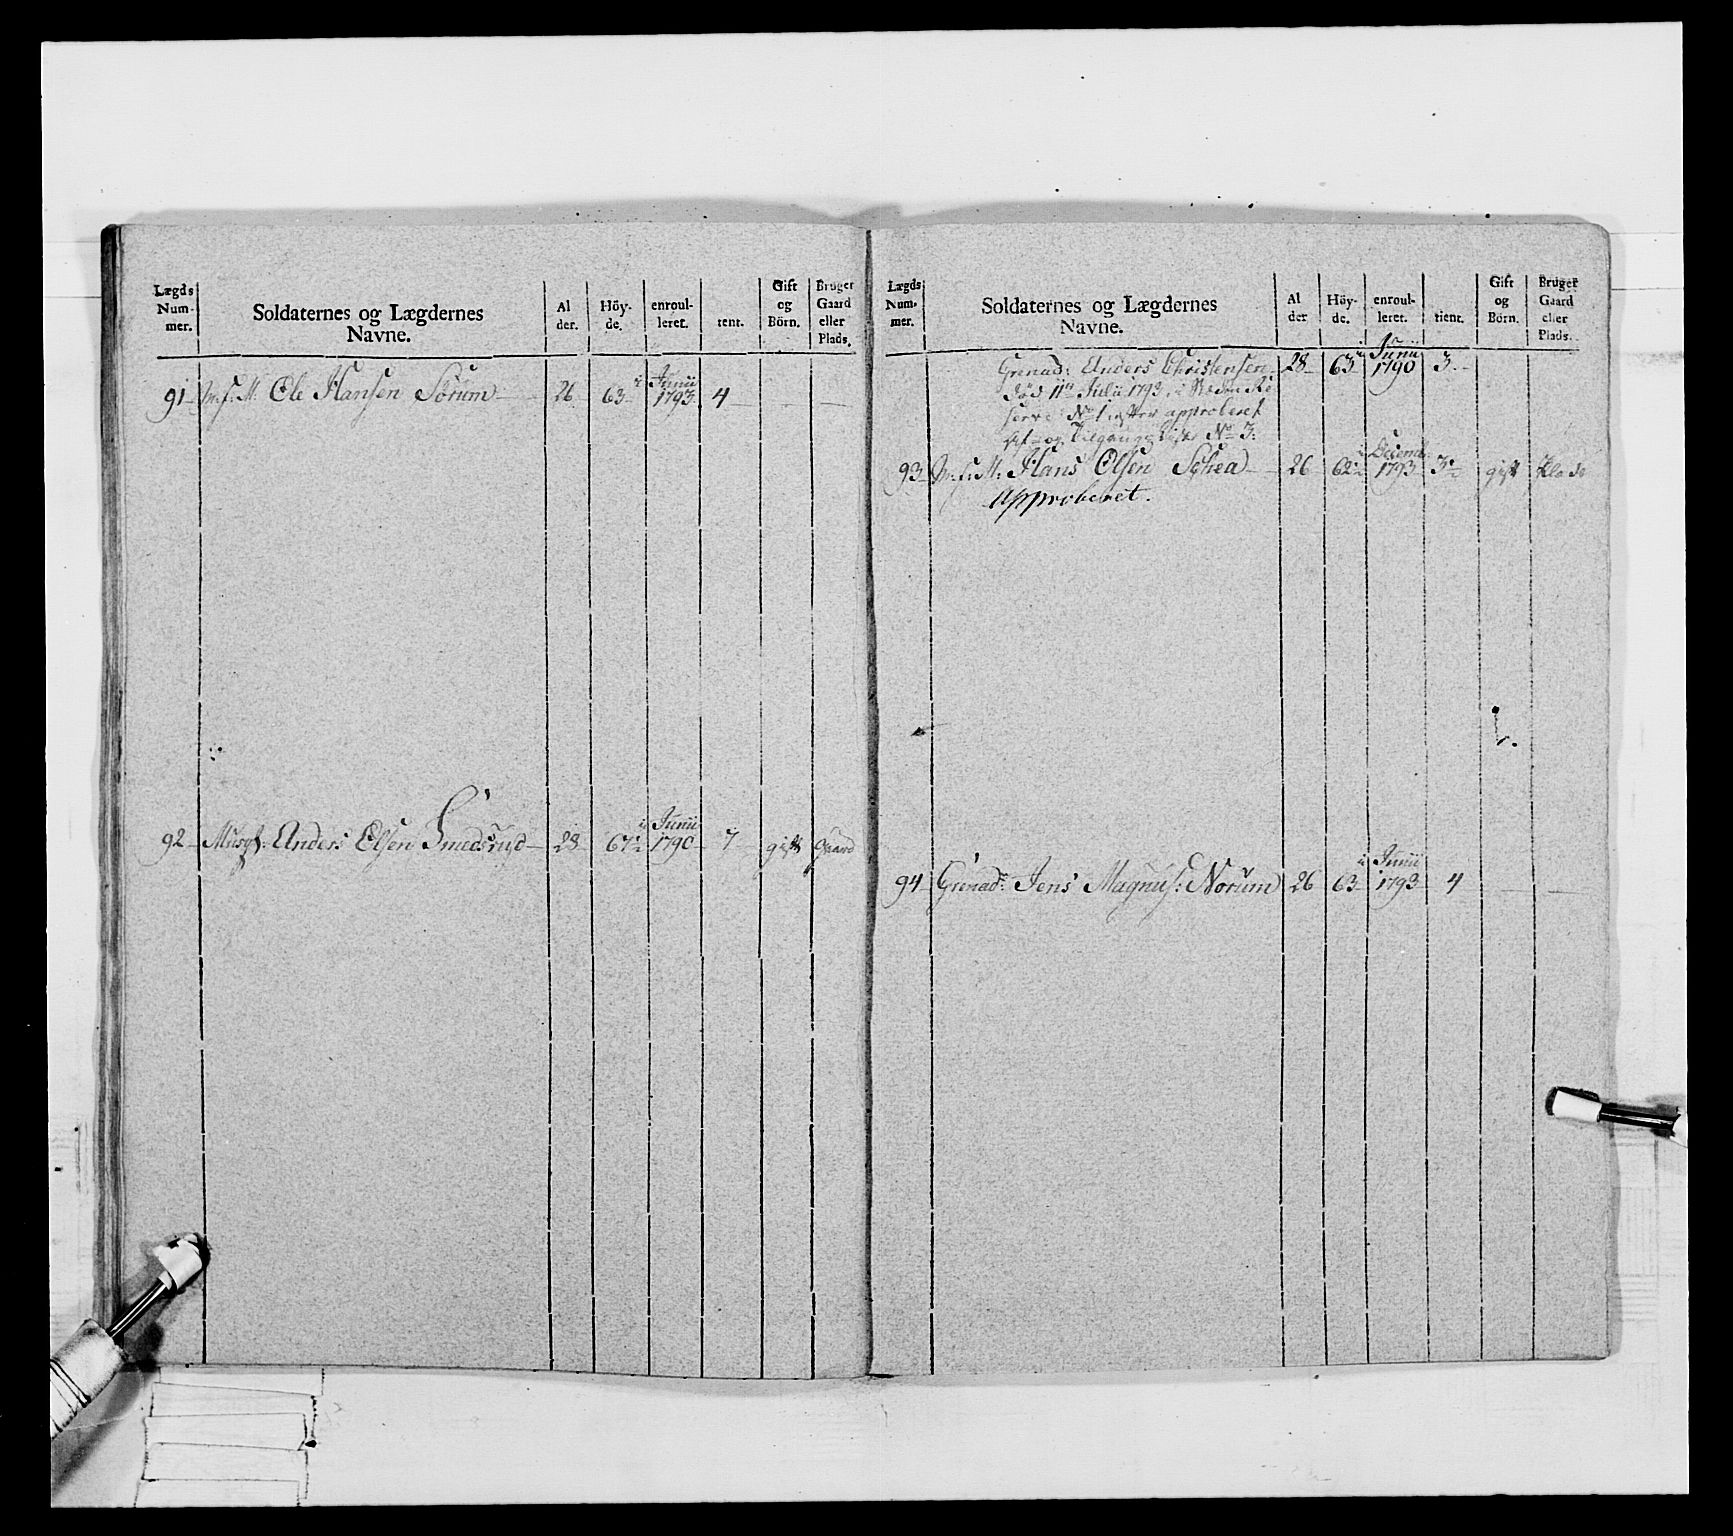 Lægds Num- mer.
Soldaternes og Lægdernes Navne.
Al der.
Höy- de.
enroul- leret.
tent.
Gift og Börn.
Bruger Gaard eller Plads.
91 Ole Hansen Sörum 26 63 Junii 1793 4
92 Musqt: Anders Olsen Smedsrud 28 67 Junii 1790 7 gift Gaard
Lægds Num- mer.
Soldaternes og Lægdernes Navne.
Al der
Höy- de.
enroul- leret.
tient.
Gift og Börn.
Bruger Gaard eller Plads.
Grenad: Anders Christensen 28 63 Junii 1790 3
död 11te Julii 1793, i Steden Re
serve No 1 efter approberet
Af- og Tilgangs Liste No 3:
93 Hans Olsen 26 62 Decemb 1793 3 gift Plads
Approberet.
94 Grenad: Jens Magnus: Norum 26 63 Junii 1793 4